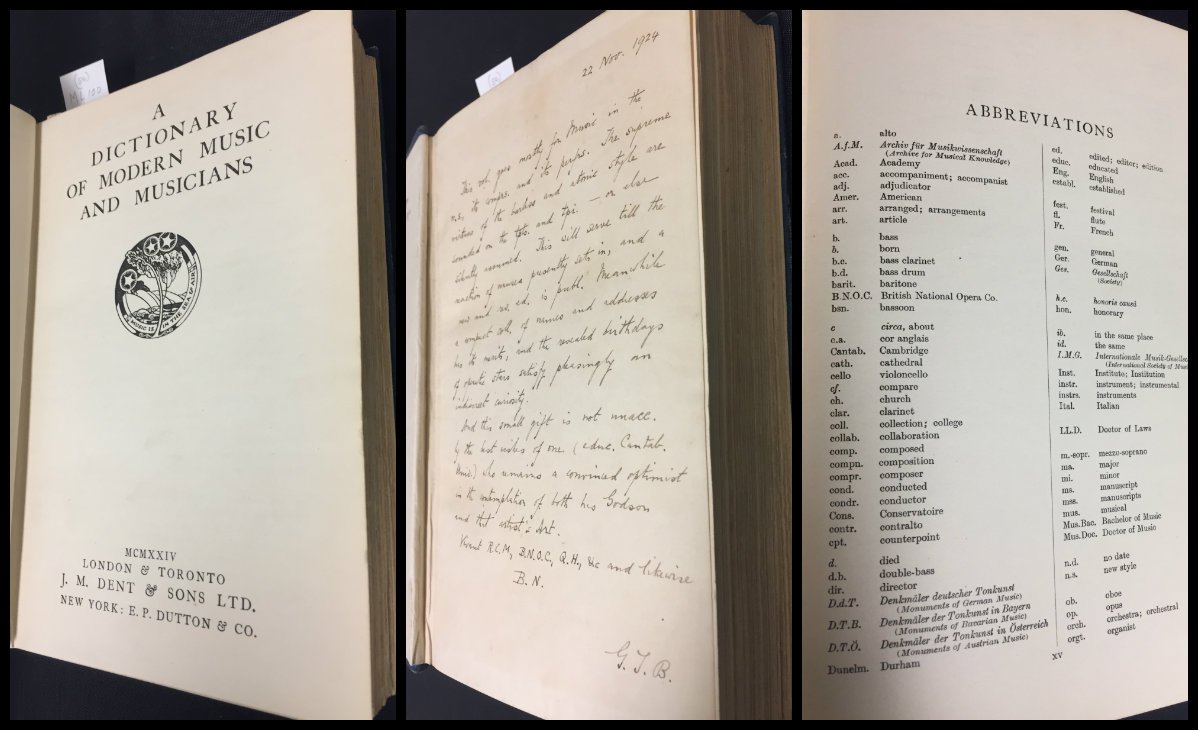 A
DICTIONARY
OF MODERN MUSIC
AND MUSICIANS
MUSIC IS IN THE SEA & AIR
MCMXXIV
LONDON & TORONTO
J. M. DENT & SONS LTD.
NEW YORK: E. P. DUTTON & CO.
22 Nov. 1924
This vol. goes mostly for Music in the
n.s., its comprs. and its perfrs. The supreme
virtues of the barless and atonic style are
sounded on the tpts. and tpi. — or else
silently assumed. This will serve till the
reaction of musea presently sets in, and a
new and rev. ed. is publ. Meanwhile
a compact coll. of names and addresses
has its merits, and the revealed birthdays
of operatic stars satisfy pleasingly an
indiscreet curiosity.
And this small gift is not unacc.
by the best wishes of one (educ. Cantab.
) who remains a convinced optimist
in the contemplation of both his Godson
and that artist's Art.
Vivant R.C.M., B.N.O.C., Q.H., &c and likewise
B.N.
G.T.B.
ABBREVIATIONS
a. alto
A.f.M. Archiv für Musikwissenschaft
(Archive for Musical Knowledge)
Acad. Academy
acc. accompaniment; accompanist
adj. adjudicator
Amer. American
arr. arranged; arrangements
art. article
b. bass
b. born
b.c. bass clarinet
b.d. bass drum
barit. baritone
B.N.O.C. British National Opera Co.
bsn. bassoon
c circa, about
c.a. cor anglais
Cantab. Cambridge
cath. cathedral
cello violoncello
cf. compare
ch. church
clar. clarinet
coll. collection; college
collab. collaboration
comp. composed
compn. composition
compr. composer
cond. conducted
condr. conductor
Cons. Conservatoire
contr. contralto
cpt. counterpoint
d. died
d.b. double-bass
dir. director
D.d.T. Denkmäler deutscher Tonkunst
(Monuments of German Music)
D.T.B. Denkmäler der Tonkunst in Bayern
(Monuments of Bavarian Music)
D.T.Ö. Denkmäler der Tonkunst in Österreich
(Monuments of Austrian Music)
Dunelm. Durham
ed. edited; editor; edition
educ. educated
Eng. English
establ. established
fest. festival
fl. flute
Fr. French
gen. general
Ger. German
Ges. Gesellschaft
(Society)
h.c. honoris causâ
hon. honorary
ib. in the same place
id. the same
I.M.G. Internationale Musik-Gesellsc
(International Society of Music
Inst. Institute; Institution
instr. instrument; instrumental
instrs. instruments
Ital. Italian
LL.D. Doctor of Laws
m.-sopr. mezzo-soprano
ma. major
mi. minor
ms. manuscript
mss. manuscripts
mus. musical
Mus.Bac. Bachelor of Music
Mus.Doc. Doctor of Music
n.d. no date
n.s. new style
ob. oboe
op. opus
orch. orchestra; orchestral
orgt. organist
xv